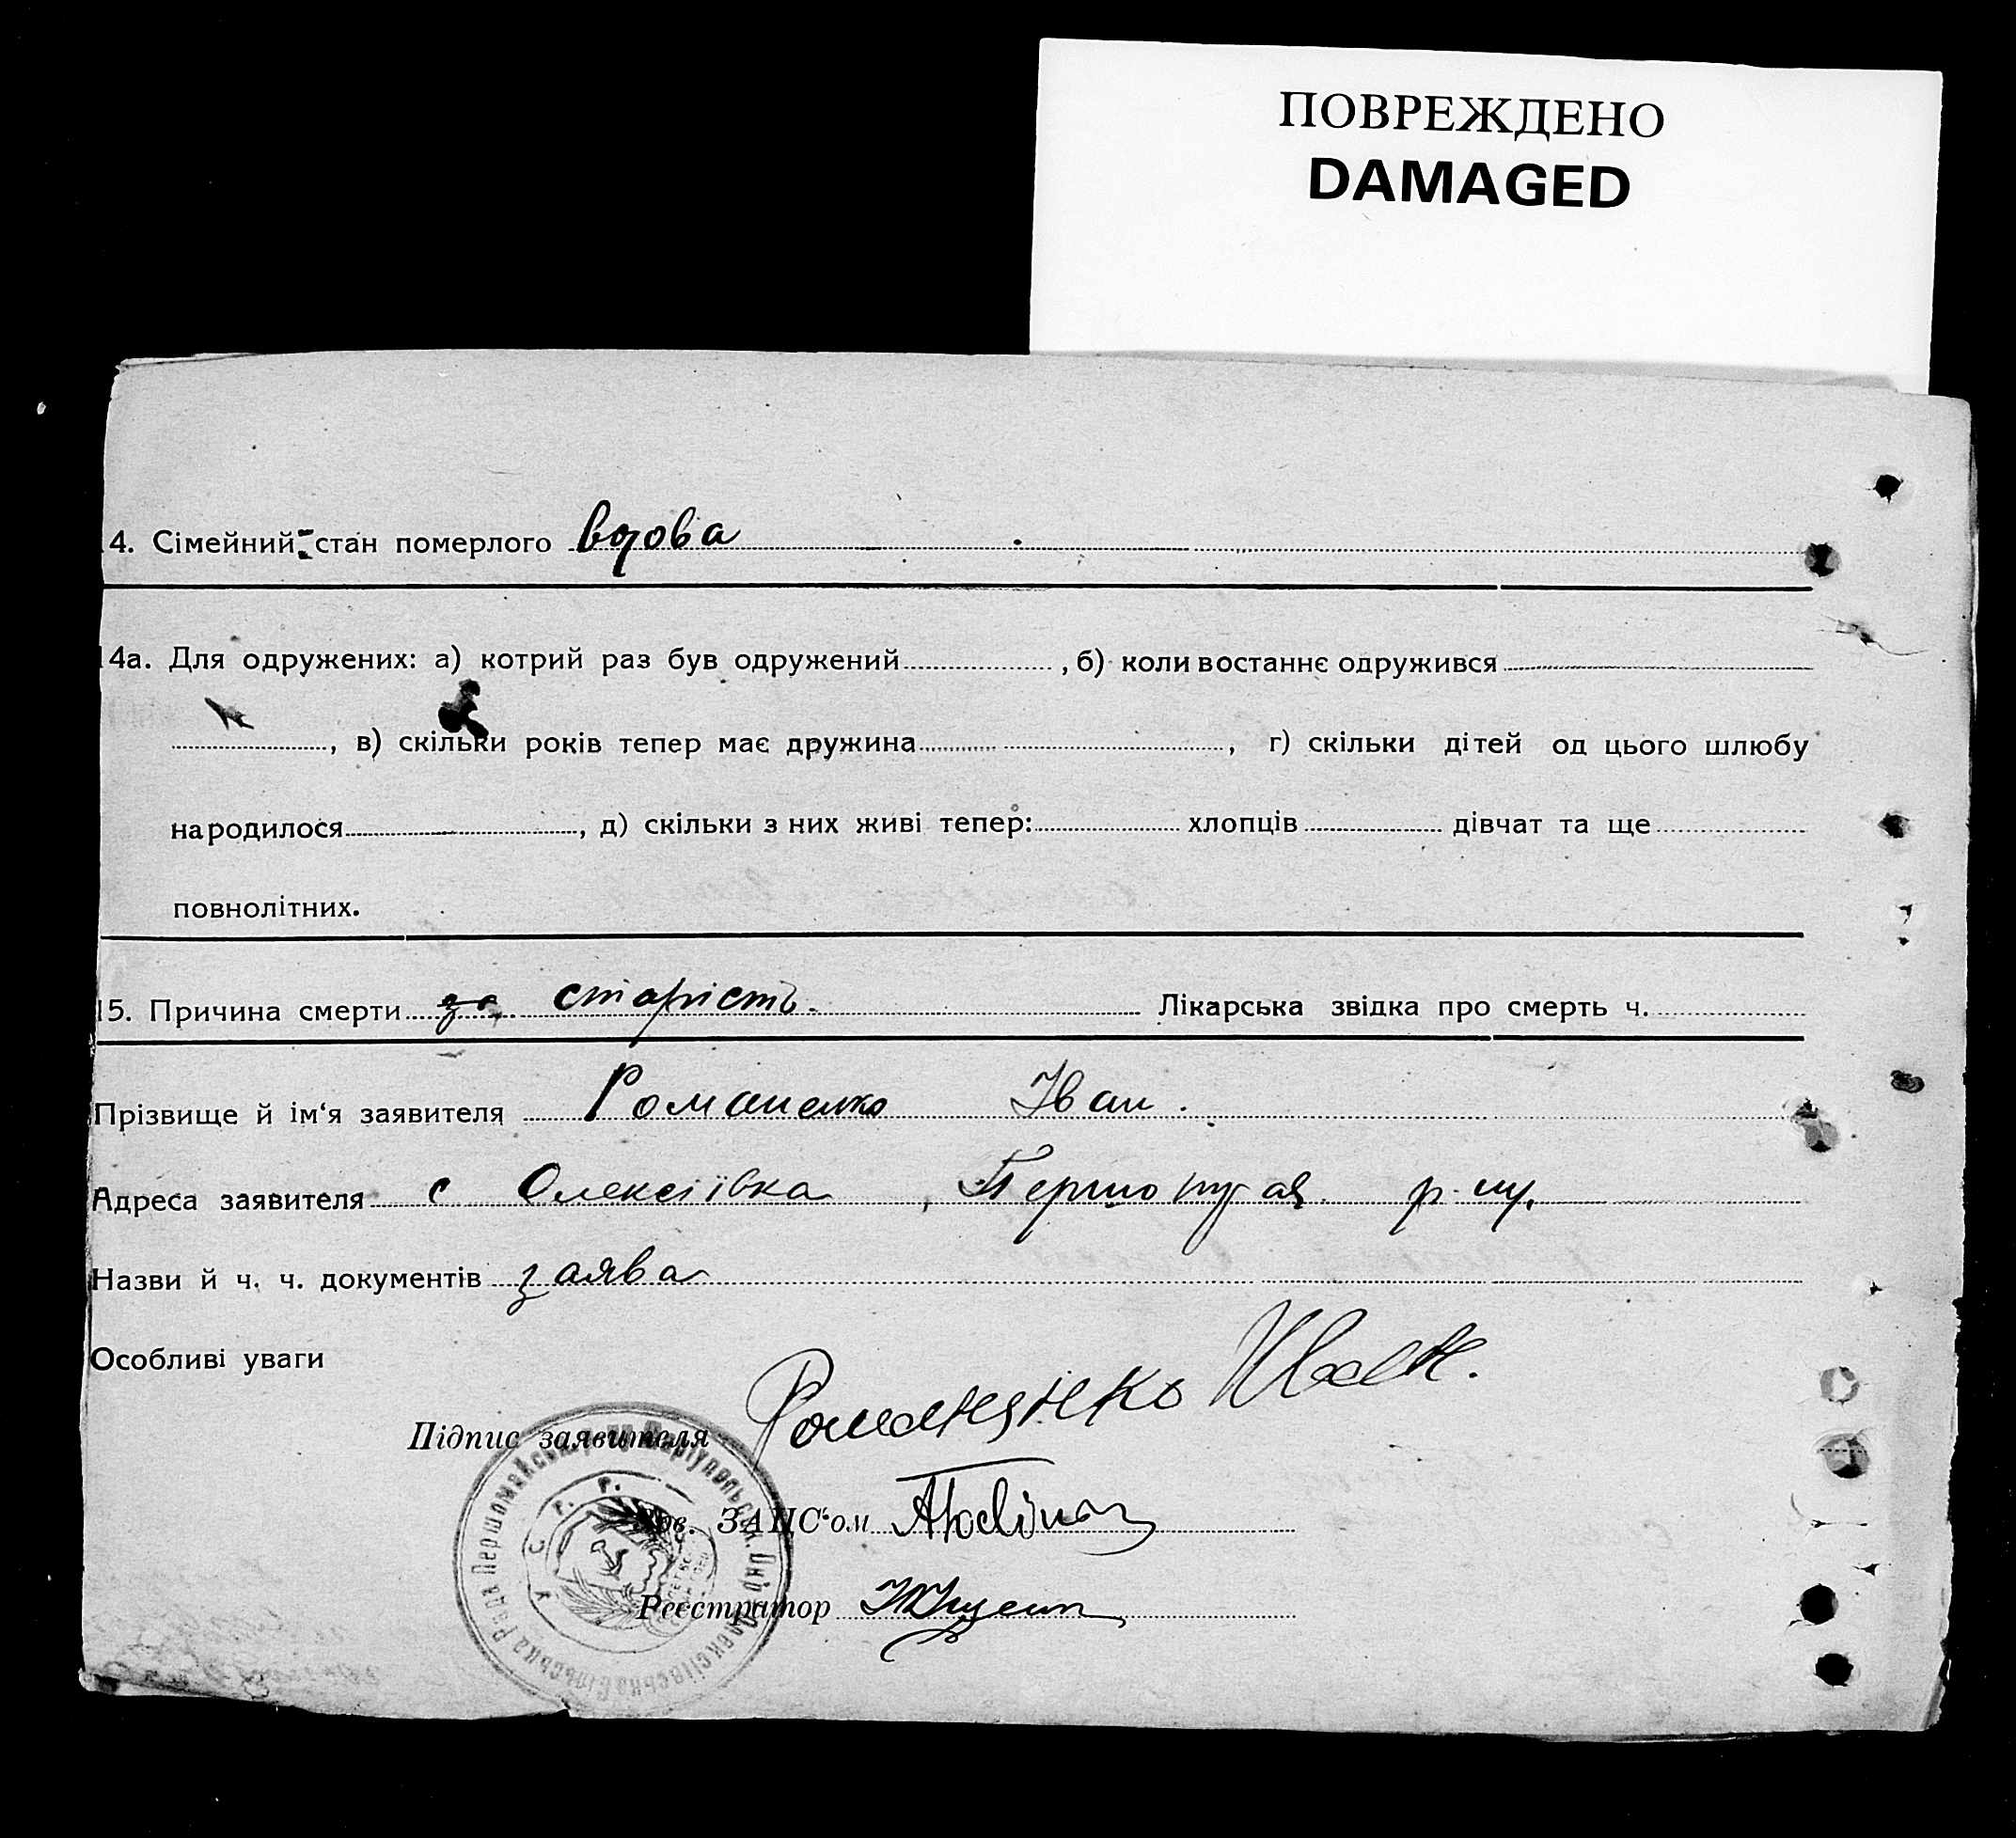 ПОВРЕЖДЕНО
DAMAGED
14. Сімейний стан померлого вдова
14а. Для одружених: а) котрий раз був одружений , б) коли востаннє одружився
, в) скільки років тепер має дружина , г) скільки дітей од цього шлюбу
народилося , д) скільки з них живі тепер: хлопців дівчат та ще
повнолітних.
15. Причина смерти за старість. Лікарська звідка про смерть ч.
Прізвище й ім‘я заявителя Романенко Іван.
Адреса заявителя с Олексіївка, р-ну,
Назви й ч. ч. документів заява
Особливі уваги
Підпис заявителя Романенко Иван.
Зав. ЗАПС‘ом
Реєстратор
У. С. Р. Р.
Олексіївська Сільська Рада Першомайськ. р-ну Маріупольськ. Окр.